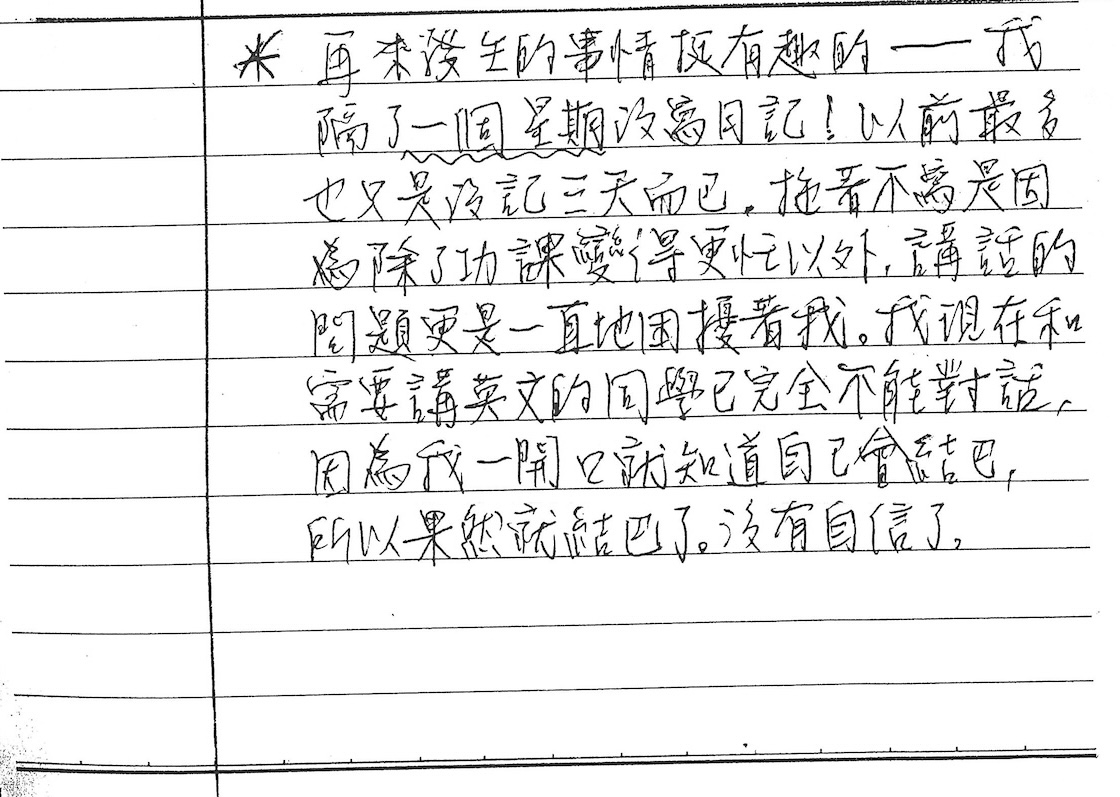 * 再來發生的事情挺有趣的——我
隔了一個星期沒寫日記!以前最多
也只是沒記三天而已。拖著不寫是因
為除了功課變得更忙以外,講話的
問題更是一直地困擾著我。我現在和
需要講英文的同學已完全不能對話,
因為我一開口就知道自己會結巴,
所以果然就結巴了。沒有自信了。